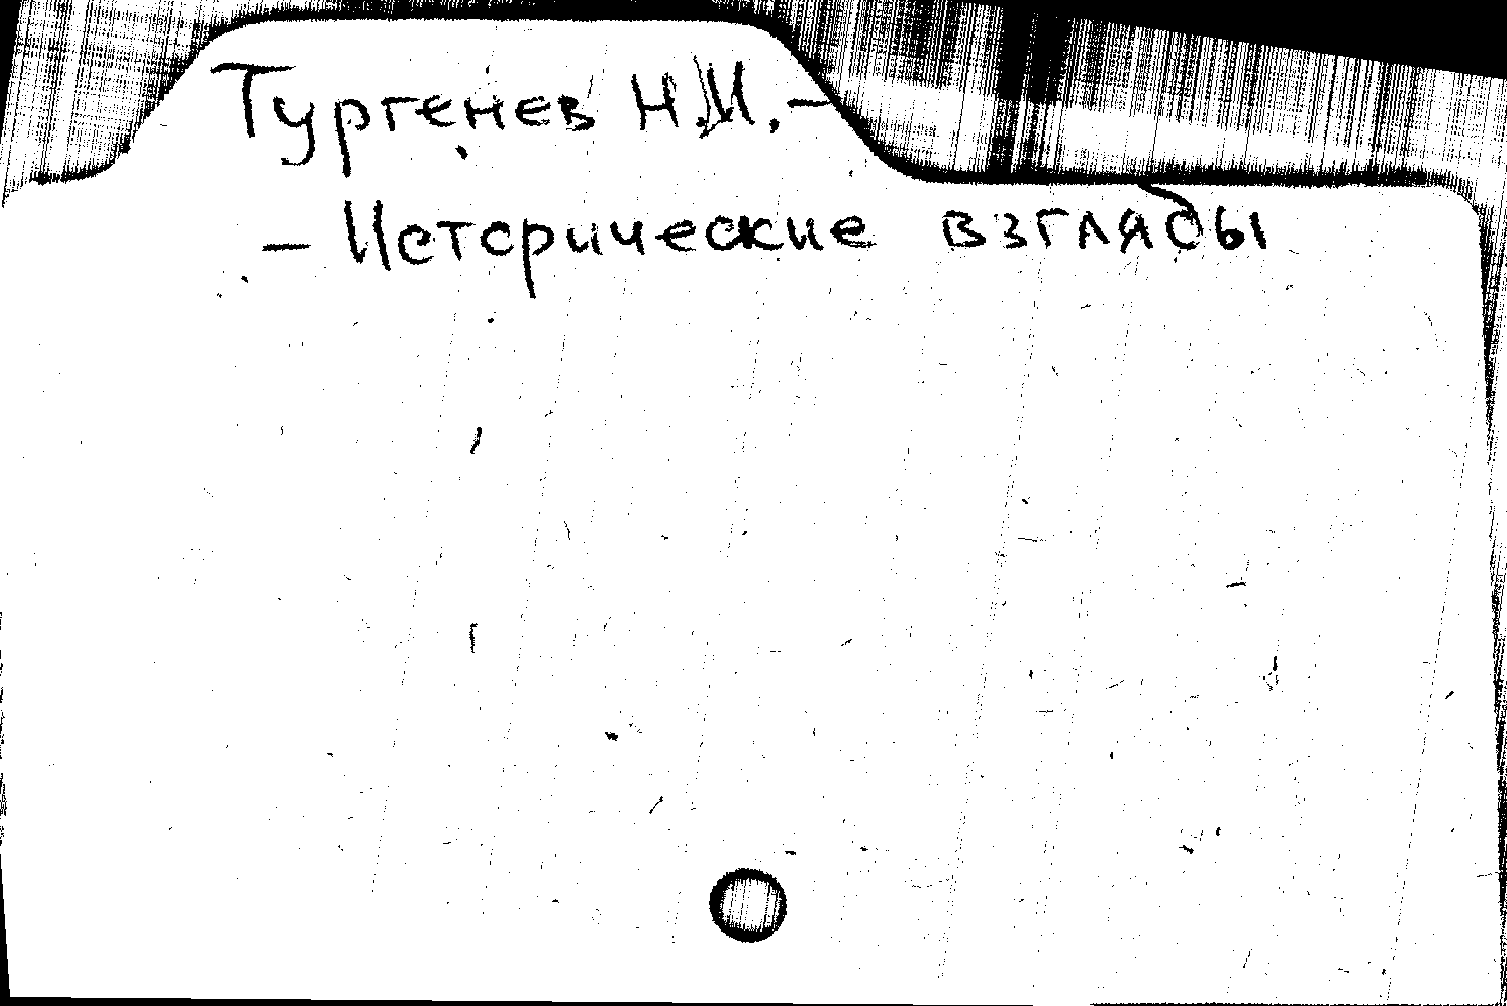 Тургенев Н.И. –
– Исторические взгляды